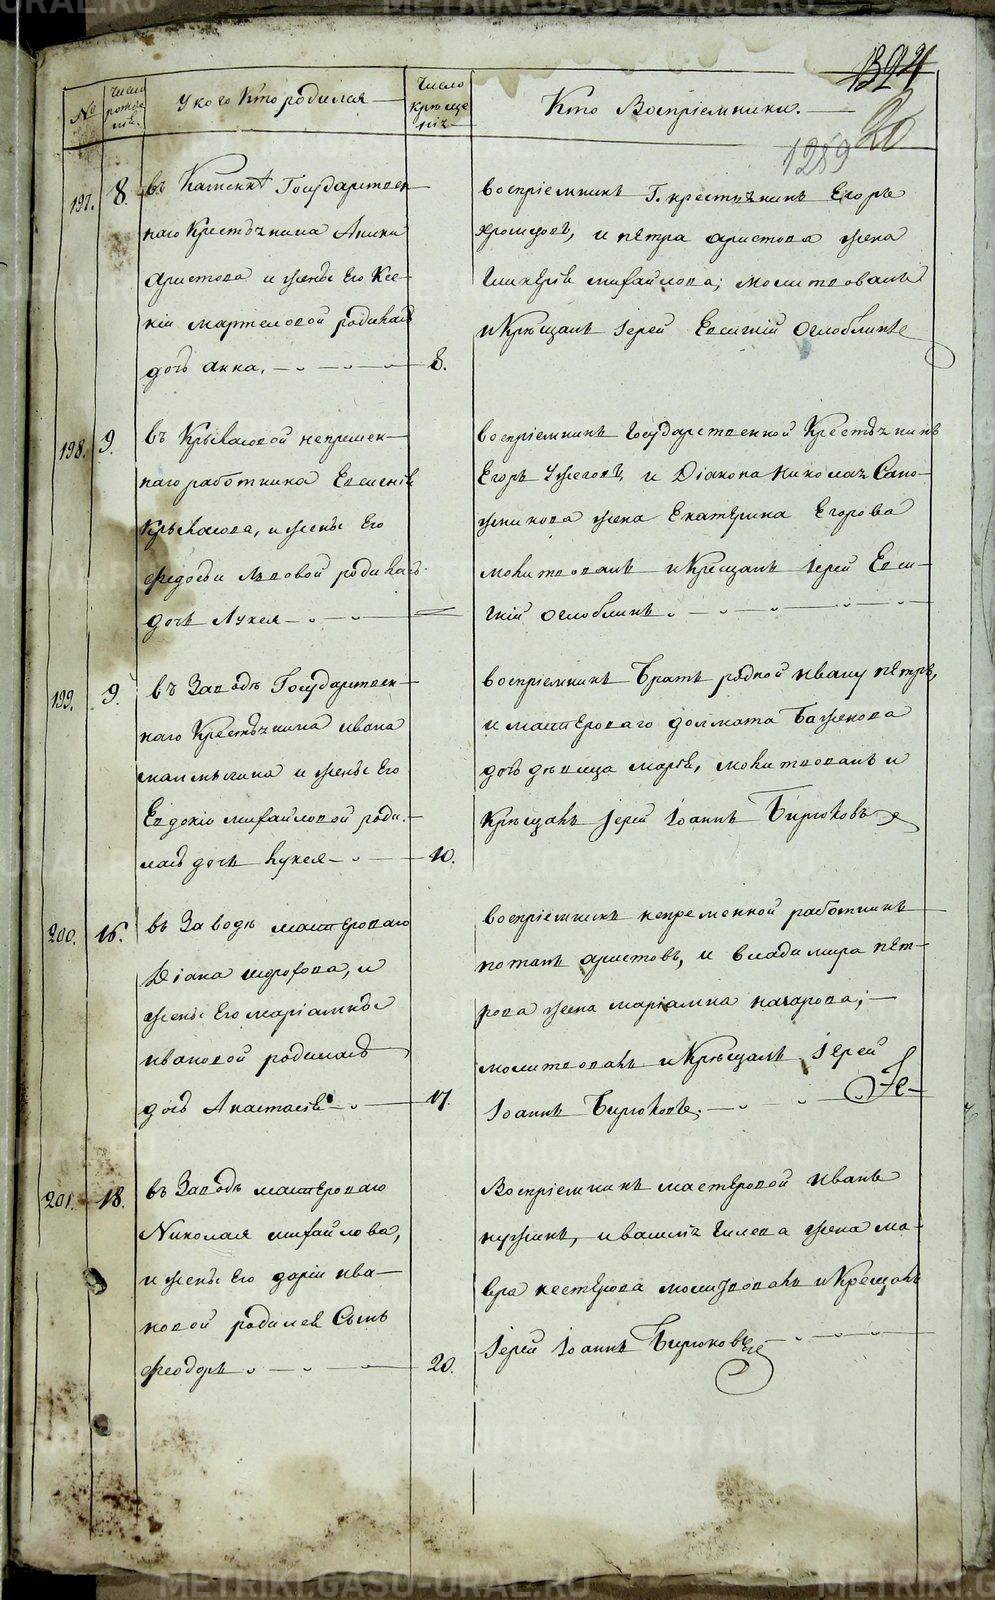 1394
20
1289
№
Число рожде нія.
У кого кто родился
Число креще нія
Кто Воспріемники.
197.
8.
въ Государствен
наго Крестьянина Аники
Аристова и жены его Ксе
ніи мартеловой родилась
дочь анна.
8.
воспріемникъ Г. крестьянинъ Егоръ
и пётра аристова жена
михайлова; молитвовалъ
и Крещалъ іерей Евсигній Оглоблинъ
198.
9.
въ непремен
наго работника Евсенія
и жены Его
федосьи Львовой родилась
дочь Лукея
воспріемникъ Государственной Крестьянинъ
Егоръ и Діакона Николая Сапо
жникова жена Екатерина Егорова
молитвовалъ и Крещалъ іерей Евси
гній Оглоблинъ
199.
9.
въ Заводѣ Государствен
наго Крестьянина ивана
и жены Его
Евдокіи михайловой роди
лась дочь лукея
10.
воспріемникъ братъ родной ивану пётръ,
и мастероваго долмата Баженова
дочь девица марѳа, молитвовалъ и
Крещалъ іерей Іоаннъ Бирюковъ
200.
16.
въ Заводѣ мастероваго
и
жены Его маріамны
ивановой родилась
дочь Анастасія
17.
воспріемникъ непременной работникъ
потапъ аристовъ, и владимира пет
рова жена маріамна назарова;
молитвовалъ и Крещалъ Іерей
Іоаннъ Бирюковъ.
201.
18.
въ Заводѣ мастероваго
Николая михайлова,
и жены его даріи ива
новой родился Сынъ
феодоръ
20.
Воспріемникъ мастеровой иванъ
гилева жена ма
вра нестерова молитвовалъ и Крещалъ
Іерей Іоаннъ Бирюковъ
METRIKI.GASO-URAL.RU